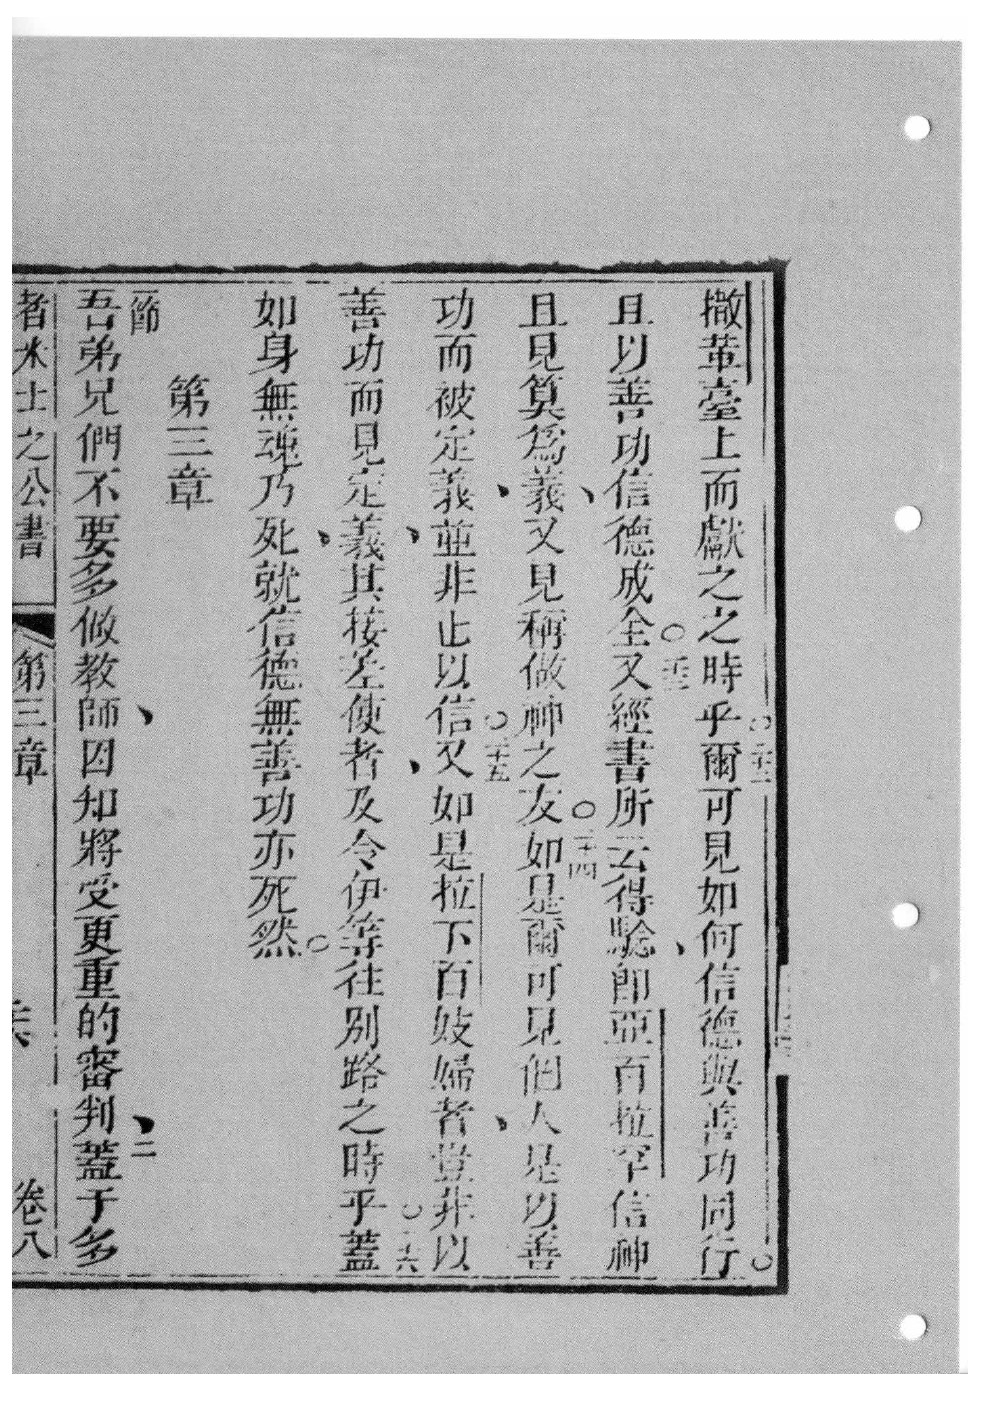 撒革臺上而獻之之時乎爾可見如何信德與善功同行
且以善功信德成全又經書所云得騐卽亞百拉罕信神
且見算爲義又見稱做神之友如是爾可見個人是以善
功而被定義並非止以信又如是拉下百妓婦者豈非以
善功而見定義其接差使者及令伊等往別路之時乎蓋
如身無魂乃死就信德無善功亦死然
第三章
一節
吾弟兄們不要多做教師因知將受更重的審判蓋于多
二十二
二十三
二十四
二十五
二十六
二
者米士之公書 第三章 卷八